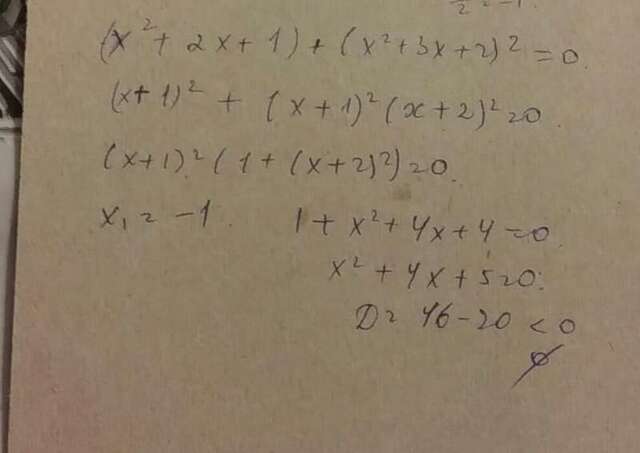 (x² + 2x + 1) + (x² + 3x + 2)² = 0.
(x + 1)² + (x + 1)² (x + 2)² = 0.
(x + 1)² (1 + (x + 2)²) = 0.
x₁ = -1. 1 + x² + 4x + 4 = 0.
x² + 4x + 5 = 0.
D = 16 - 20 < 0
∅